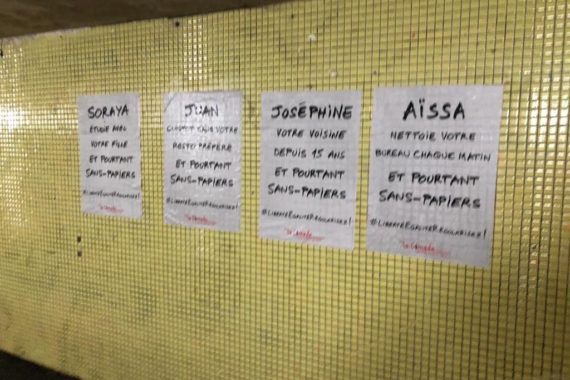 SORAYA
ÉTUDIE AVEC
VOTRE FILLE
ET POURTANT
SANS-PAPIERS
#LIBERTÉEGALITÉREGULARISEZ!
JUAN
CUISINE DANS VOTRE
RESTO PRÉFÉRÉ
ET POURTANT
SANS-PAPIERS
#LIBERTÉEGALITÉREGULARISEZ!
JOSÉPHINE
VOTRE VOISINE
DEPUIS 15 ANS
ET POURTANT
SANS-PAPIERS
#LIBERTÉEGALITÉREGULARISEZ!
AÏSSA
NETTOIE VOTRE
BUREAU CHAQUE MATIN
ET POURTANT
SANS-PAPIERS
#LIBERTÉEGALITÉREGULARISEZ!